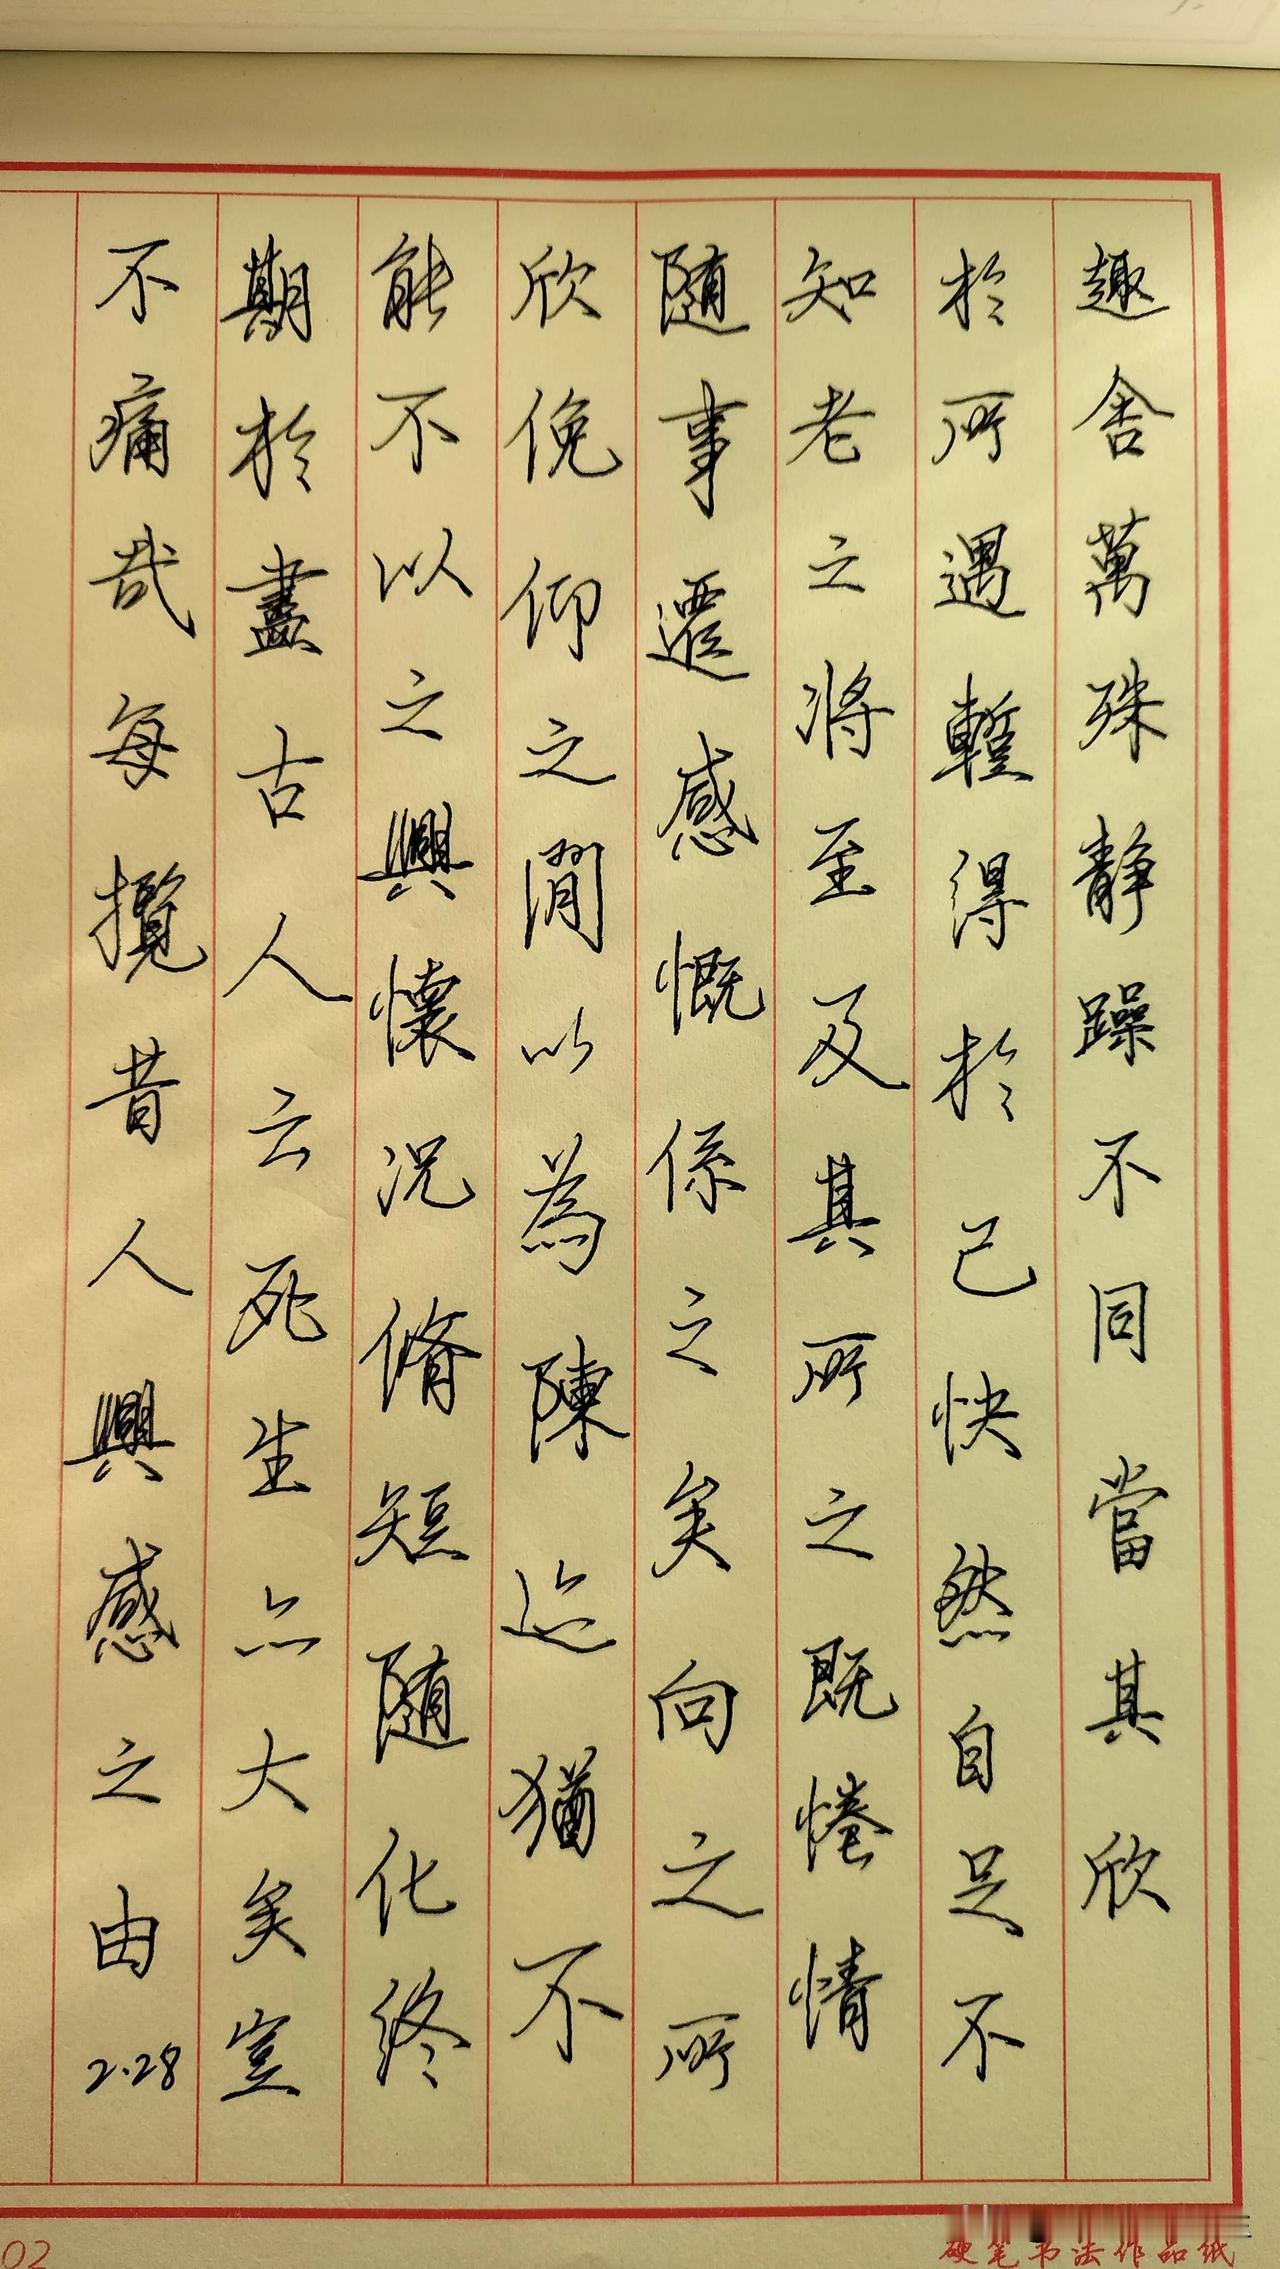 趣舍萬殊静躁不同當其欣
於所遇暫得於己快然自足不
知老之将至及其所之既惓情
随事遷感慨係之矣向之所
欣俛仰之間以為陳迹猶不
能不以之興懷况脩短随化終
期於盡古人云死生亦大矣豈
不痛哉每攬昔人興感之由
2.28
硬笔书法作品纸
02